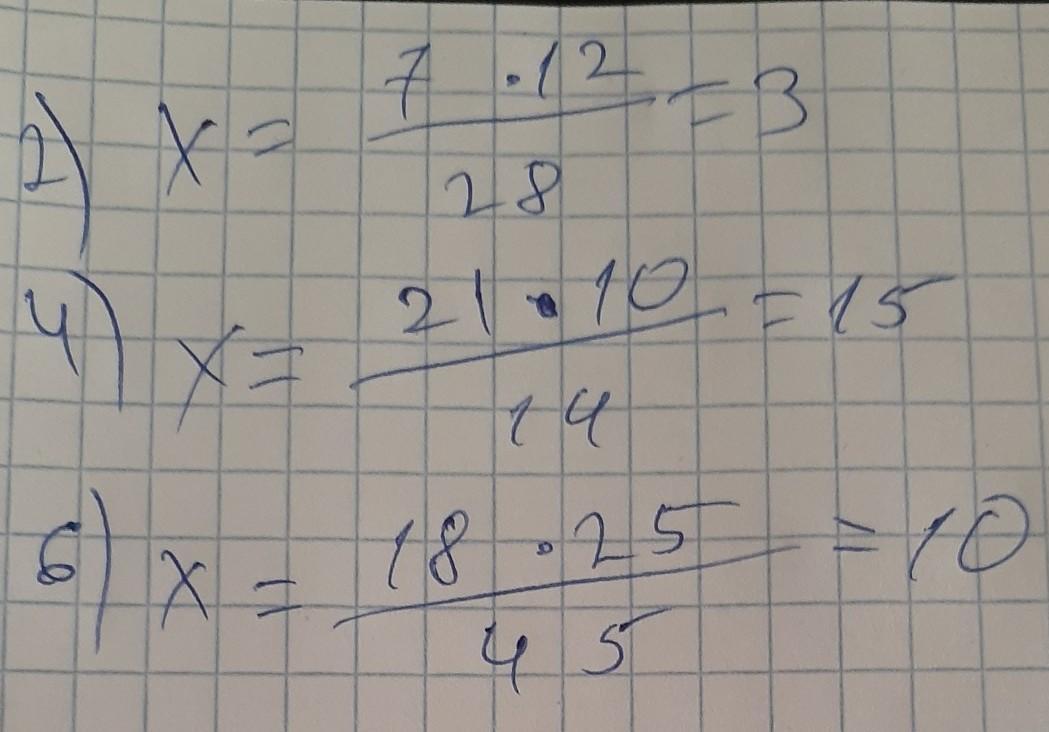 2) x = 7 · 12 / 28 = 3
4) x = 21 · 10 / 14 = 15
6) x = 18 · 25 / 45 = 10